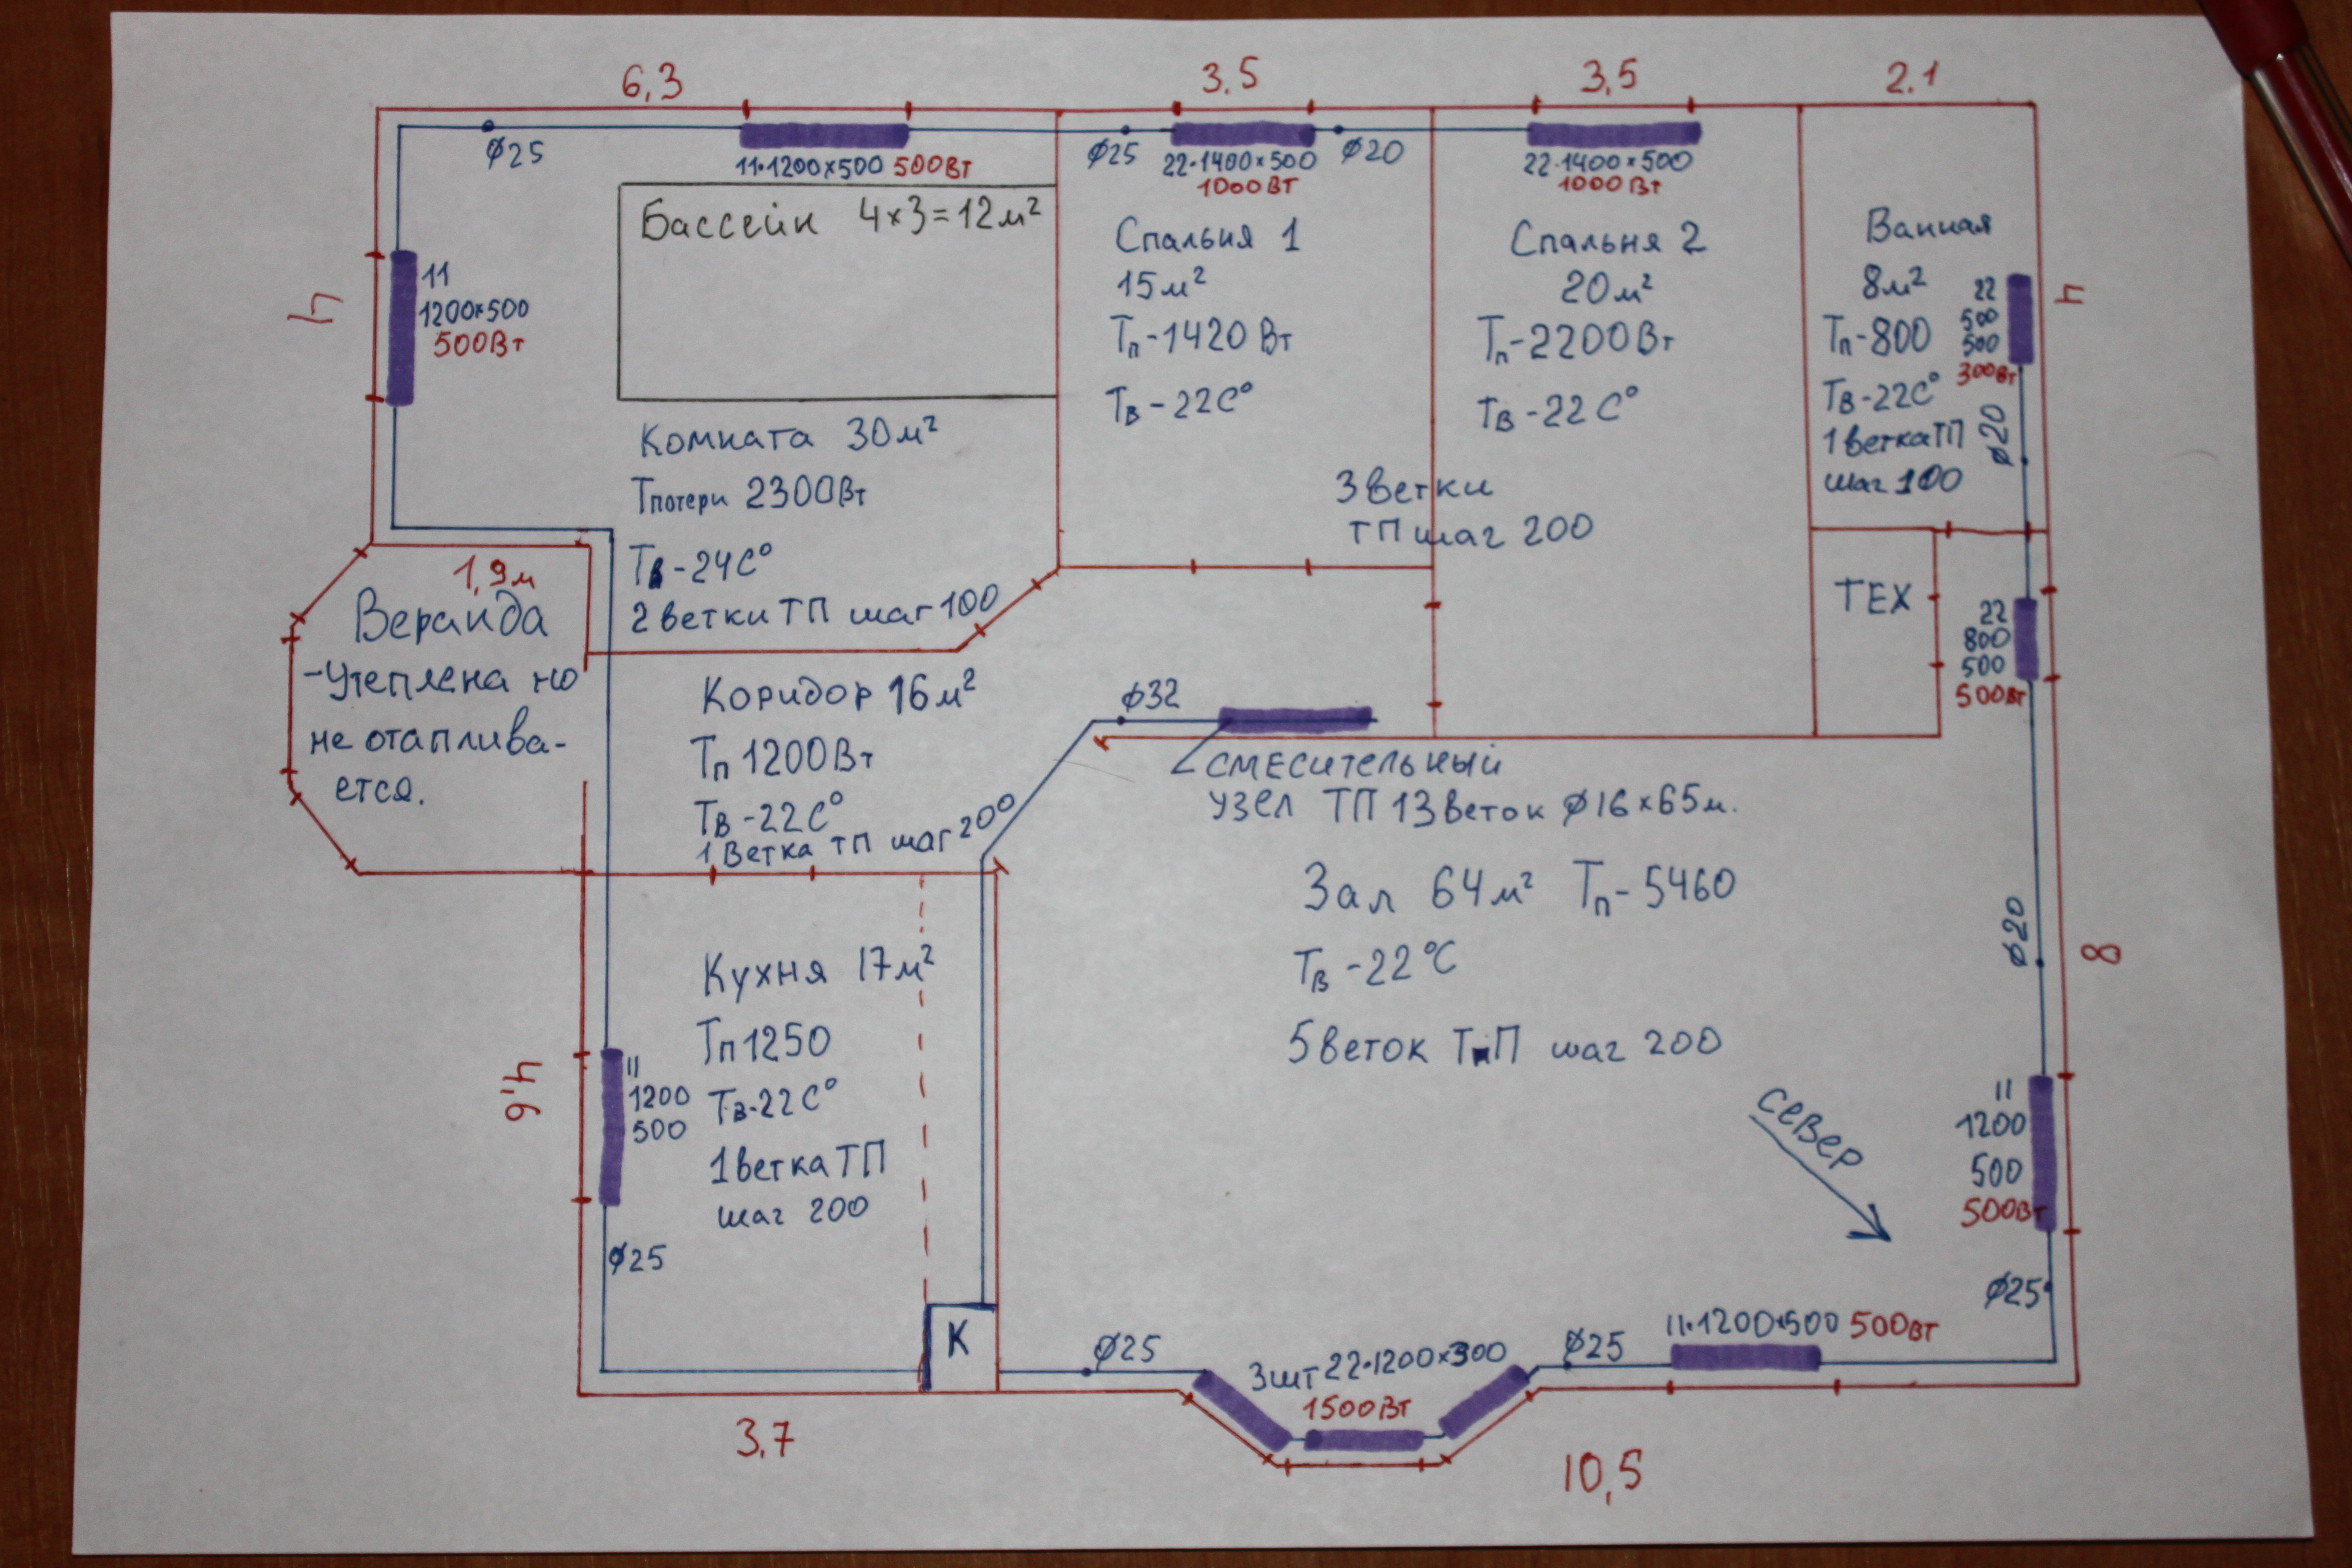 6,3
3,5
3,5
2.1
ø25
11·1200×500 500Вт
ø25
22·1400×500
1000Вт
ø20
22·1400×500
1000Вт
4
11
1200×500
500Вт
Бассейн 4×3=12м²
Комната 30м²
Тпотери 2300Вт
Тв-24С°
2 ветки ТП шаг 100
Спальня 1
15м²
Тп-1420 Вт
Тв-22С°
Спальня 2
20м²
Тп-2200Вт
Тв-22С°
3 ветки
ТП шаг 200
Ванная
8м²
Тп-800
Тв-22С°
1 ветка ТП
шаг 100
22
500
500
300Вт
ø20
4
ТЕХ
22
800
500
500Вт
1,9м
Веранда
-Утеплена но
не отаплива-
ется.
Коридор 16м²
Тп 1200Вт
Тв-22С°
1 Ветка ТП шаг 200
ø32
СМЕСИТЕЛЬНЫЙ
УЗЕЛ ТП 13 веток ø16×65м.
Зал 64м² Тп-5460
Тв-22°С
5 веток ТП шаг 200
ø20
8
север
4,6
Кухня 17м²
Тп 1250
Тв-22С°
1 ветка ТП
шаг 200
11
1200
500
ø25
К
11
1200
500
500Вт
ø25
ø25
3шт 22·1200×300
1500Вт
ø25
11·1200×500 500Вт
3,7
10,5